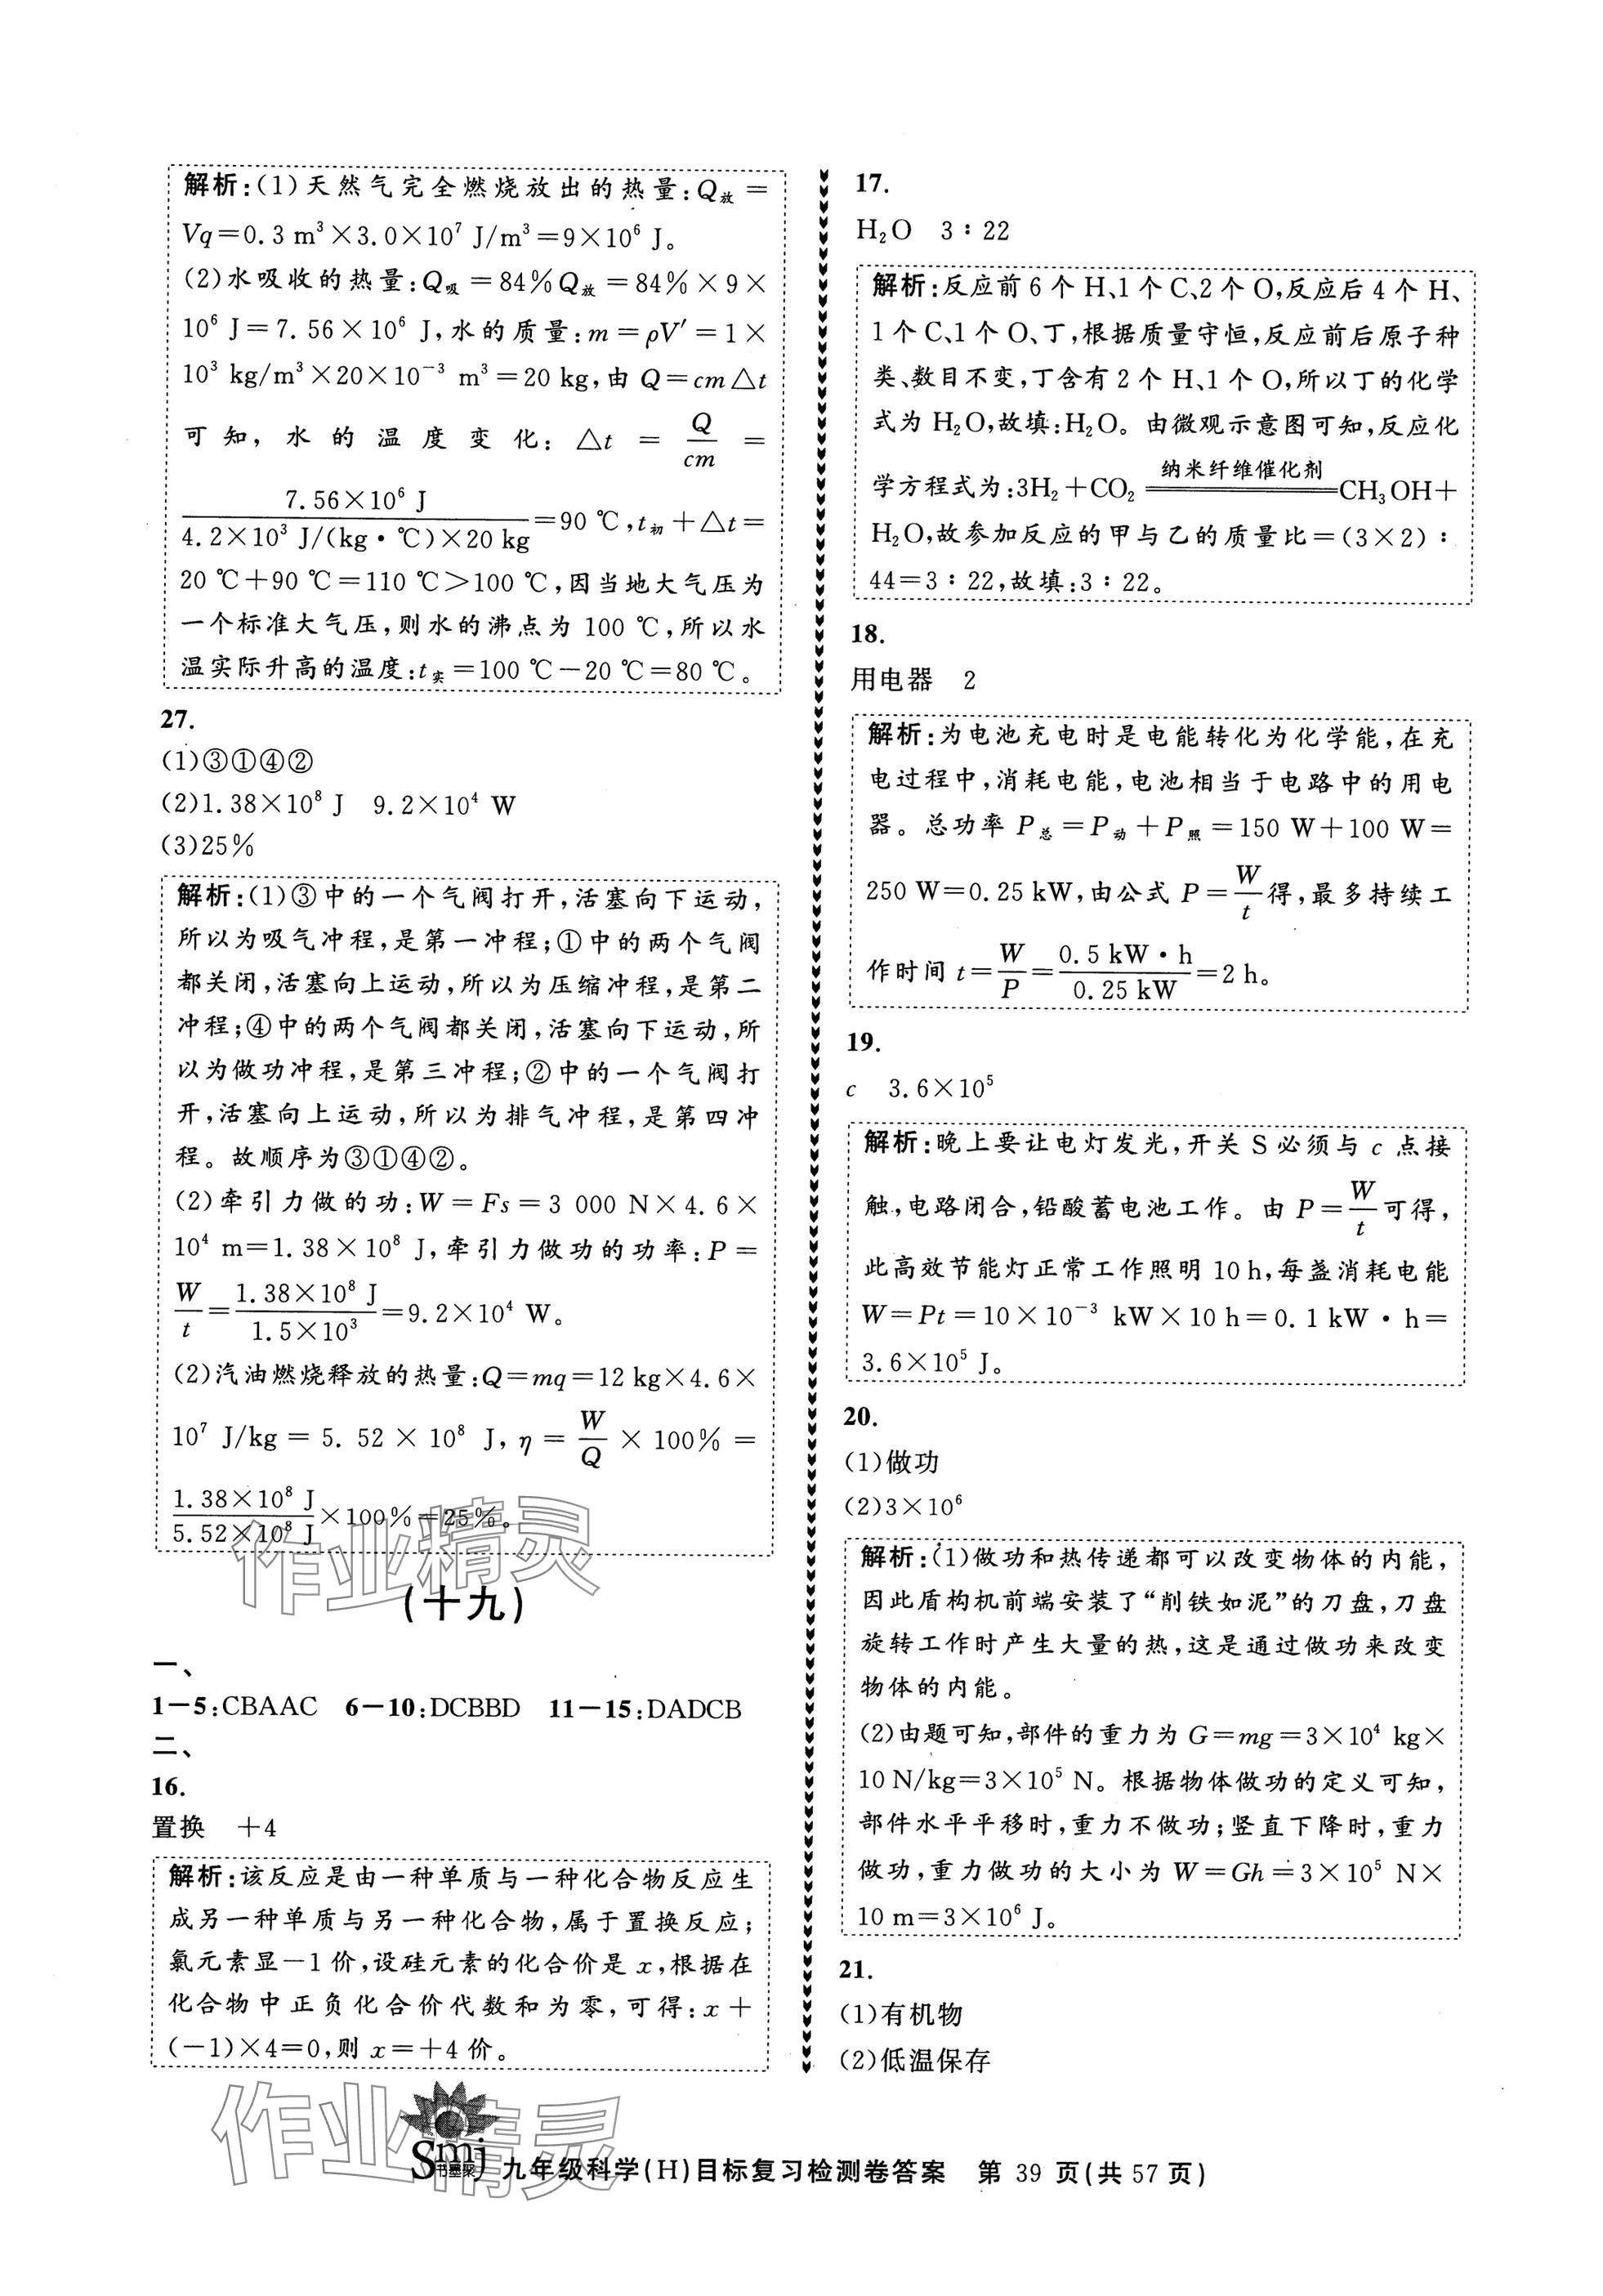 解析:(1)天然气完全燃烧放出的热量:Q放=
Vq=0.3 m³×3.0×10⁷ J/m³=9×10⁶ J。
(2)水吸收的热量:Q吸=84%Q放=84%×9×
10⁶ J=7.56×10⁶ J,水的质量:m=ρV′=1×
10³ kg/m³×20×10⁻³ m³=20 kg,由 Q=cm△t
可知,水的温度变化:△t=Q/cm=
7.56×10⁶ J/4.2×10³ J/(kg·℃)×20 kg=90 ℃,t初+△t=
20 ℃+90 ℃=110 ℃>100 ℃,因当地大气压为
一个标准大气压,则水的沸点为 100 ℃,所以水
温实际升高的温度:t实=100 ℃-20 ℃=80 ℃。
27.
(1)③①④②
(2)1.38×10⁸ J 9.2×10⁴ W
(3)25%
解析:(1)③中的一个气阀打开,活塞向下运动,
所以为吸气冲程,是第一冲程;①中的两个气阀
都关闭,活塞向上运动,所以为压缩冲程,是第二
冲程;④中的两个气阀都关闭,活塞向下运动,所
以为做功冲程,是第三冲程;②中的一个气阀打
开,活塞向上运动,所以为排气冲程,是第四冲
程。故顺序为③①④②。
(2)牵引力做的功:W=Fs=3 000 N×4.6×
10⁴ m=1.38×10⁸ J,牵引力做功的功率:P=
W/t=1.38×10⁸ J/1.5×10³=9.2×10⁴ W。
(2)汽油燃烧释放的热量:Q=mq=12 kg×4.6×
10⁷ J/kg=5.52×10⁸ J,η=W/Q×100%=
1.38×10⁸ J/5.52×10⁸ J×100%=25%。
作业精灵
(十九)
一、
1-5:CBAAC 6-10:DCBBD 11-15:DADCB
二、
16.
置换 +4
解析:该反应是由一种单质与一种化合物反应生
成另一种单质与另一种化合物,属于置换反应;
氯元素显-1价,设硅元素的化合价是 x,根据在
化合物中正负化合价代数和为零,可得:x+
(-1)×4=0,则 x=+4价。
17.
H₂O 3∶22
解析:反应前6个H、1个C、2个O,反应后4个H、
1个C、1个O、丁,根据质量守恒,反应前后原子种
类、数目不变,丁含有2个H、1个O,所以丁的化学
式为H₂O,故填:H₂O。由微观示意图可知,反应化
纳米纤维催化剂
学方程式为:3H₂+CO₂═══CH₃OH+
H₂O,故参加反应的甲与乙的质量比=(3×2)∶
44=3∶22,故填:3∶22。
18.
用电器 2
解析:为电池充电时是电能转化为化学能,在充
电过程中,消耗电能,电池相当于电路中的用电
器。总功率 P总=P动+P照=150 W+100 W=
250 W=0.25 kW,由公式 P=W/t得,最多持续工
作时间 t=W/P=0.5 kW·h/0.25 kW=2 h。
19.
c 3.6×10⁵
解析:晚上要让电灯发光,开关 S 必须与 c 点接
触,电路闭合,铅酸蓄电池工作。由 P=W/t可得,
此高效节能灯正常工作照明10 h,每盏消耗电能
W=Pt=10×10⁻³ kW×10 h=0.1 kW·h=
3.6×10⁵ J。
20.
(1)做功
(2)3×10⁶
解析:(1)做功和热传递都可以改变物体的内能,
因此盾构机前端安装了“削铁如泥”的刀盘,刀盘
旋转工作时产生大量的热,这是通过做功来改变
物体的内能。
(2)由题可知,部件的重力为 G=mg=3×10⁴ kg×
10 N/kg=3×10⁵ N。根据物体做功的定义可知,
部件水平平移时,重力不做功;竖直下降时,重力
做功,重力做功的大小为 W=Gh=3×10⁵ N×
10 m=3×10⁶ J。
21.
(1)有机物
(2)低温保存
作业精灵
Smj
书墨聚
九年级科学(H)目标复习检测卷答案 第 39 页(共 57 页)